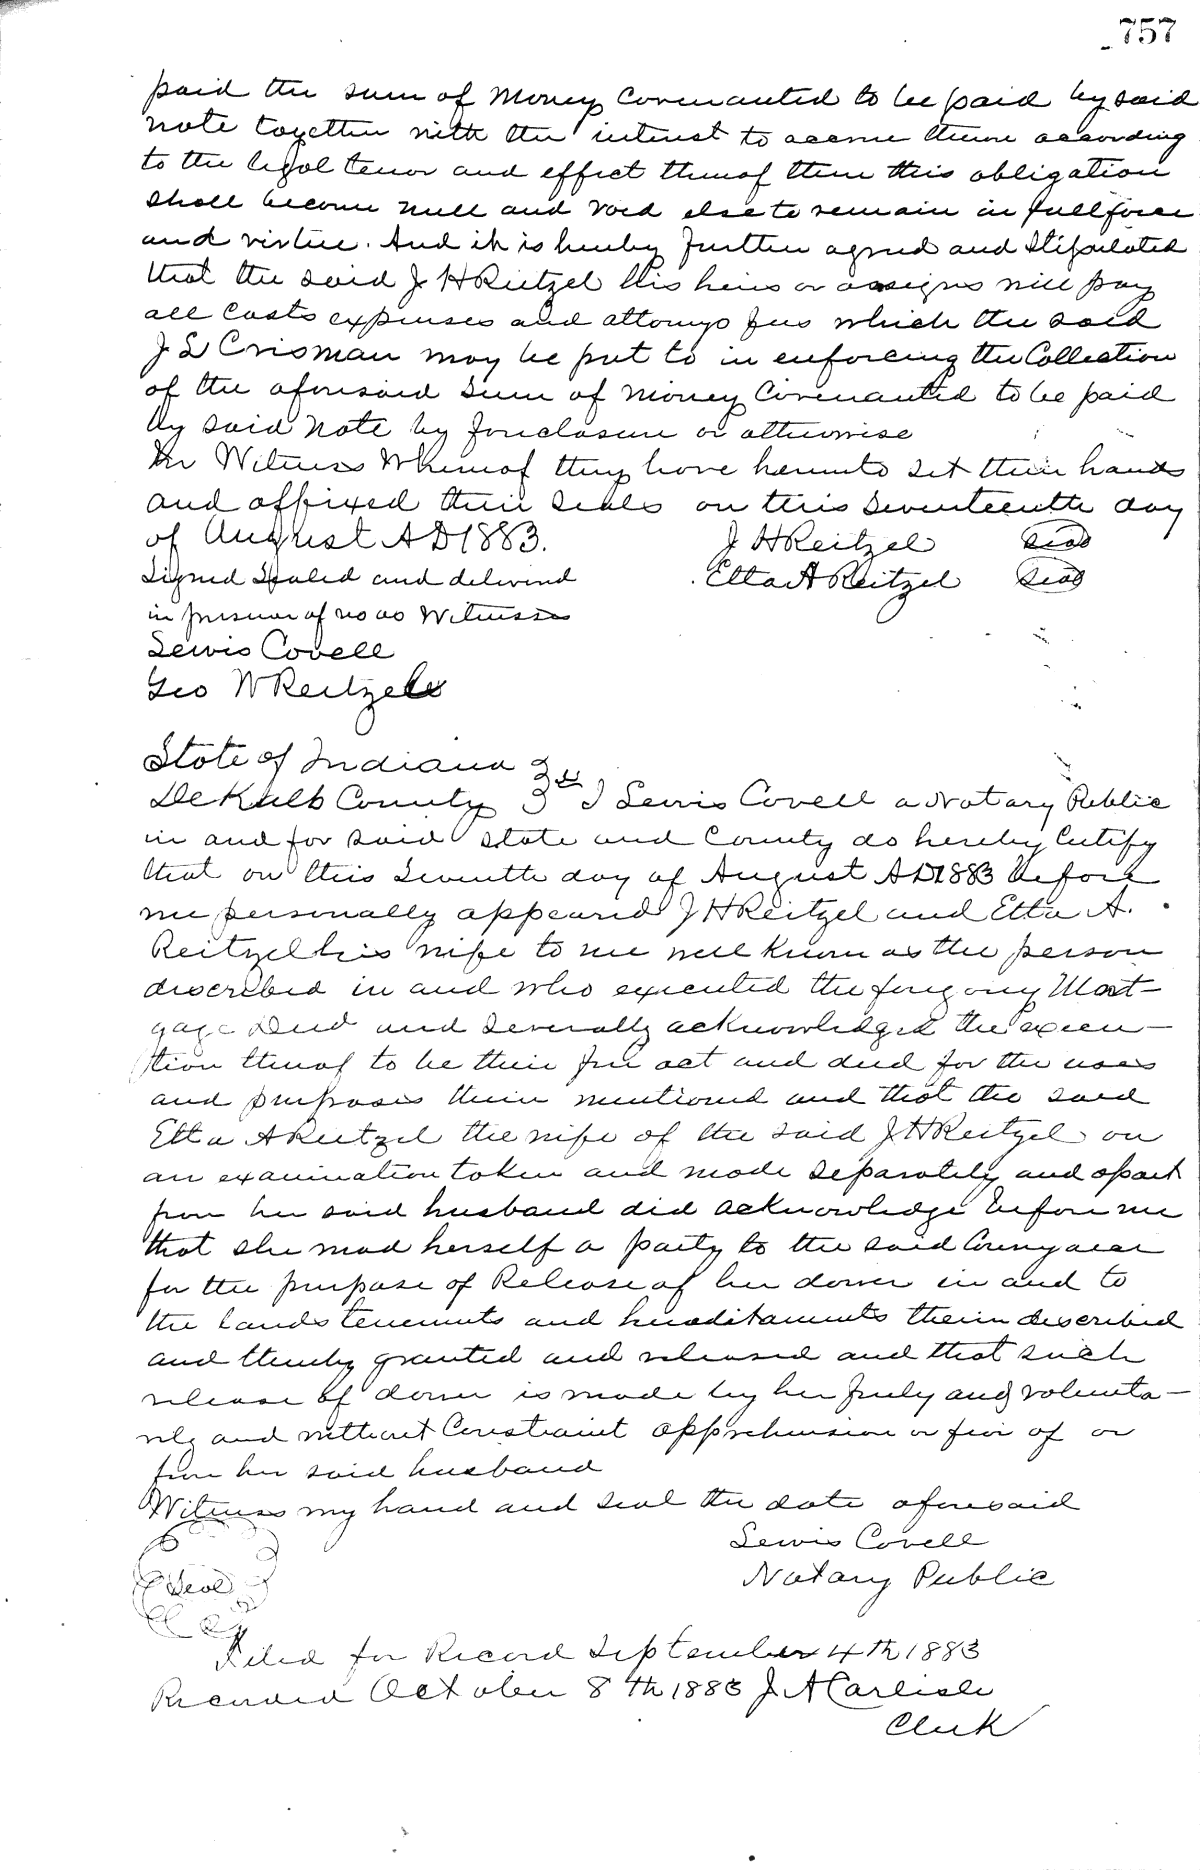 757
paid the sum of Money Covenanted to be paid by said
note together with the interest to accrue thereon according
to the legal tenor and effect thereof then this obligation
shall become null and void else to remain in full force
and virtue. And it is hereby further agreed and stipulated
that the said J H Reitzel his heirs or assigns will pay
all Costs expenses and attorneys fees which the said
J L Crisman may be put to in enforcing the Collection
of the aforesaid Sum of Money Covenanted to be paid
by said Note by foreclosure or otherwise
In Witness Whereof they have hereunto set their hands
and affixed their seals on this seventeenth day
of August A D 1883. J H Reitzel Seal
Signed Sealed and delivered Etta A Reitzel Seal
in presence of us as Witnesses
Lewis Covell
Geo W Reitzel
State of Indiana
DeKalb County I Lewis Covell a Notary Public
in and for said State and County do hereby Certify
that on this Seventh day of August A D 1883 before
me personally appeared J H Reitzel and Etta A.
Reitzel his wife to me well known as the person
described in and who executed the foregoing Mort-
gage Deed and severally acknowledged the execu-
tion thereof to be their free act and deed for the uses
and purposes therein mentioned and that the said
Etta A Reitzel the wife of the said J H Reitzel on
an examination taken and made separately and apart
from her said husband did acknowledge before me
that she mad herself a party to the said Conveyance
for the purpose of Release of her dower in and to
the lands tenements and hereditaments therein described
and thereby granted and released and that such
release of dower is made by her freely and volunta-
rily and without Constraint apprehension or fear of or
from her said husband
Witness my hand and seal the date aforesaid
Lewis Covell
Seal Notary Public
Filed for Record September 4th 1883
Recorded October 8th 1883 J A Carlisle
Clerk